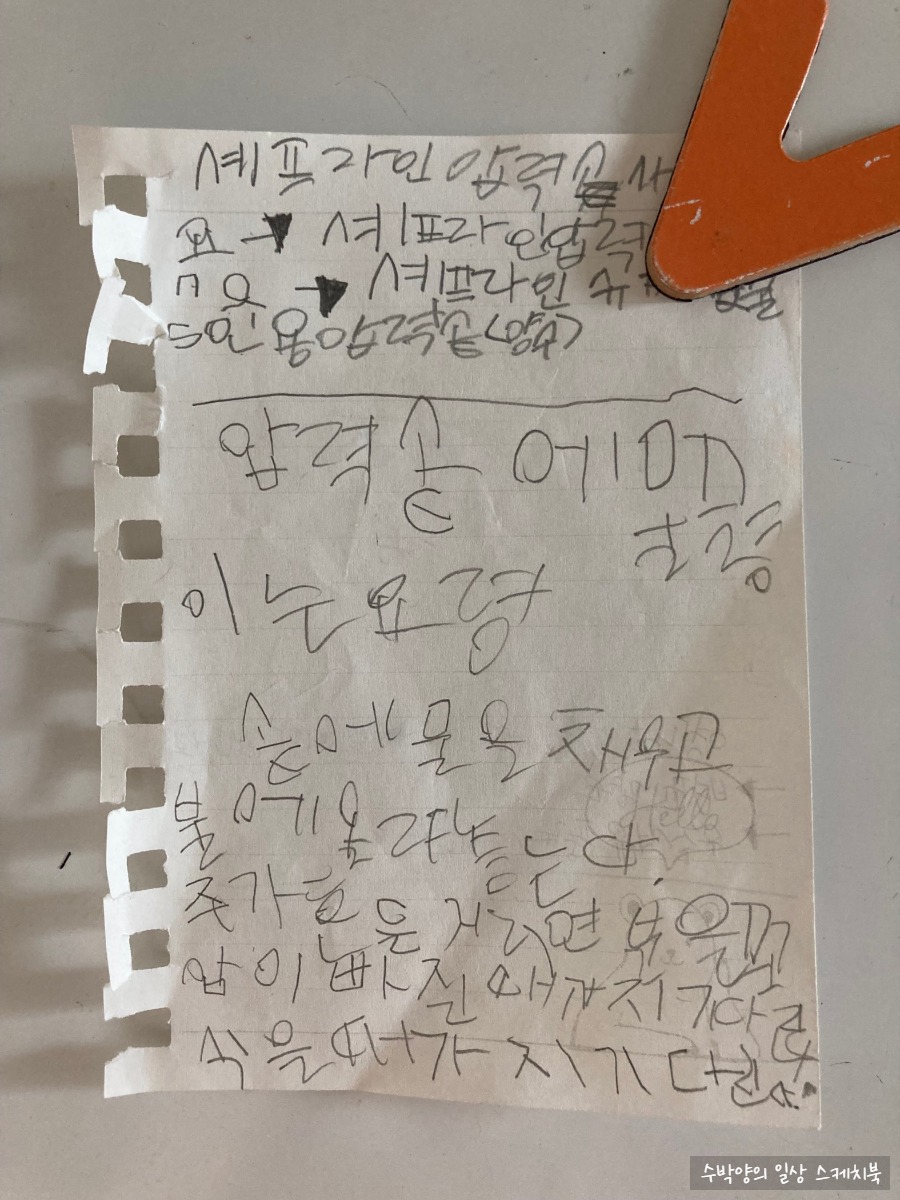 셰프라인 압력솥 사
요 → 셰프라인압력
셰프라인
5인용압력솥(양)
압력솥 에머
이누요령
솥에 물을 채우고
불에 올려놓는다.
추가 흔들거리면 불을끄고
압이 빠질 때까지 기다려
식을때까지 기다린다.
Hello
수박양의 일상 스케치북